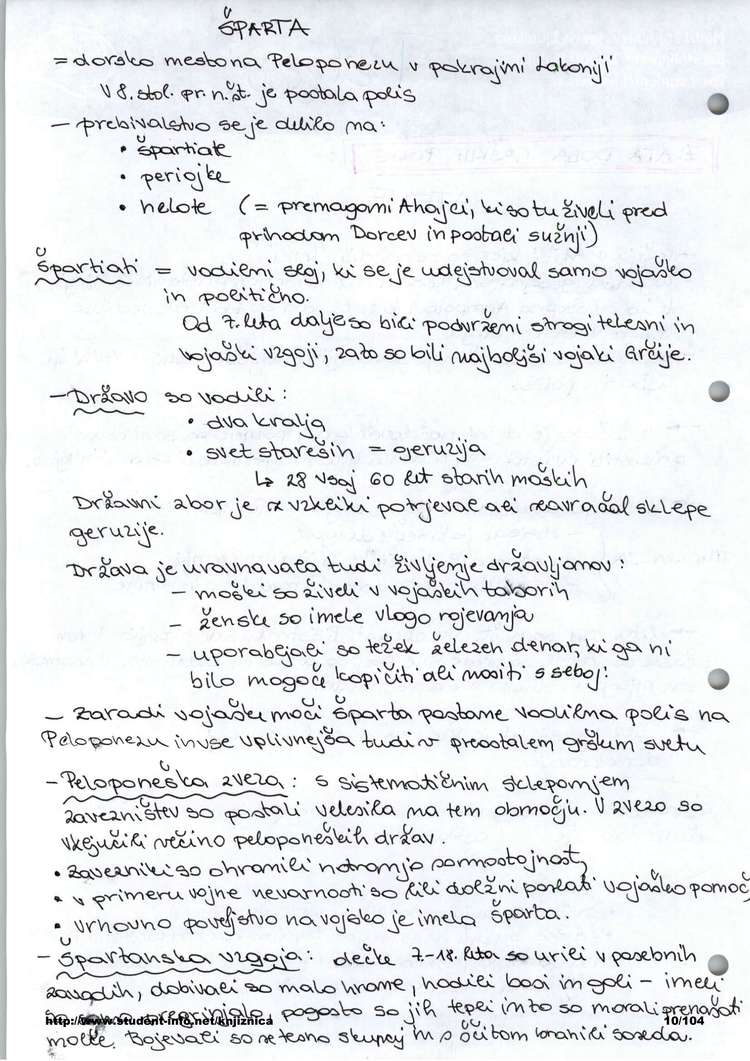 ŠPARTA
= dorsko mesto na Peloponezu v pokrajini Lakoniji
V 8. stol. pr. n. št. je postala polis
- prebivalstvo se je delilo na:
• špartiate
• periojke
• helote (= premagani Ahajci, ki so tu živeli pred
prihodom Dorcev in postali sužnji)
Špartiati = vodilni sloj, ki se je udejstvoval samo vojaško
in politično.
Od 7. leta dalje so bili podvrženi strogi telesni in
vojaški vzgoji, zato so bili najboljši vojaki Grčije.
- Državo so vodili:
• dva kralja
• svet starešin = geruzija
↳ 28 vsaj 60 let starih moških
Državni zbor je z vzkliki potrjeval ali zavračal sklepe
geruzije.
Država je uravnavala tudi življenje državljanov:
- moški so živeli v vojaških taborih
- ženske so imele vlogo rojevanja
- uporabljali so težek železen denar, ki ga ni
bilo mogoče kopičiti ali nositi s seboj!
- Zaradi vojaške moči Šparta postane vodilna polis na
Peloponezu in vse vplivnejša tudi v preostalem grškem svetu
- Peloponeška zveza: s sistematičnim sklepanjem
zavezništev so postali velesila na tem območju. V zvezo so
vključili večino peloponeških držav.
• Zavezniki so ohranili notranjo samostojnost,
• v primeru vojne nevarnosti so bili dolžni poslati vojaško pomoč
• vrhovno poveljstvo na vojsko je imela Šparta.
- Špartanska vzgoja: dečke 7.-18. leta so urili v posebnih
zavodih, dobivali so malo hrane, hodili bosi in goli - imeli
so samo pogosto so jih tepli in to so morali prenašati
molče. Bojevali so se tesno skupaj in s ščitom branili soseda.
http://www.student-info.net/knjiznica
10/104